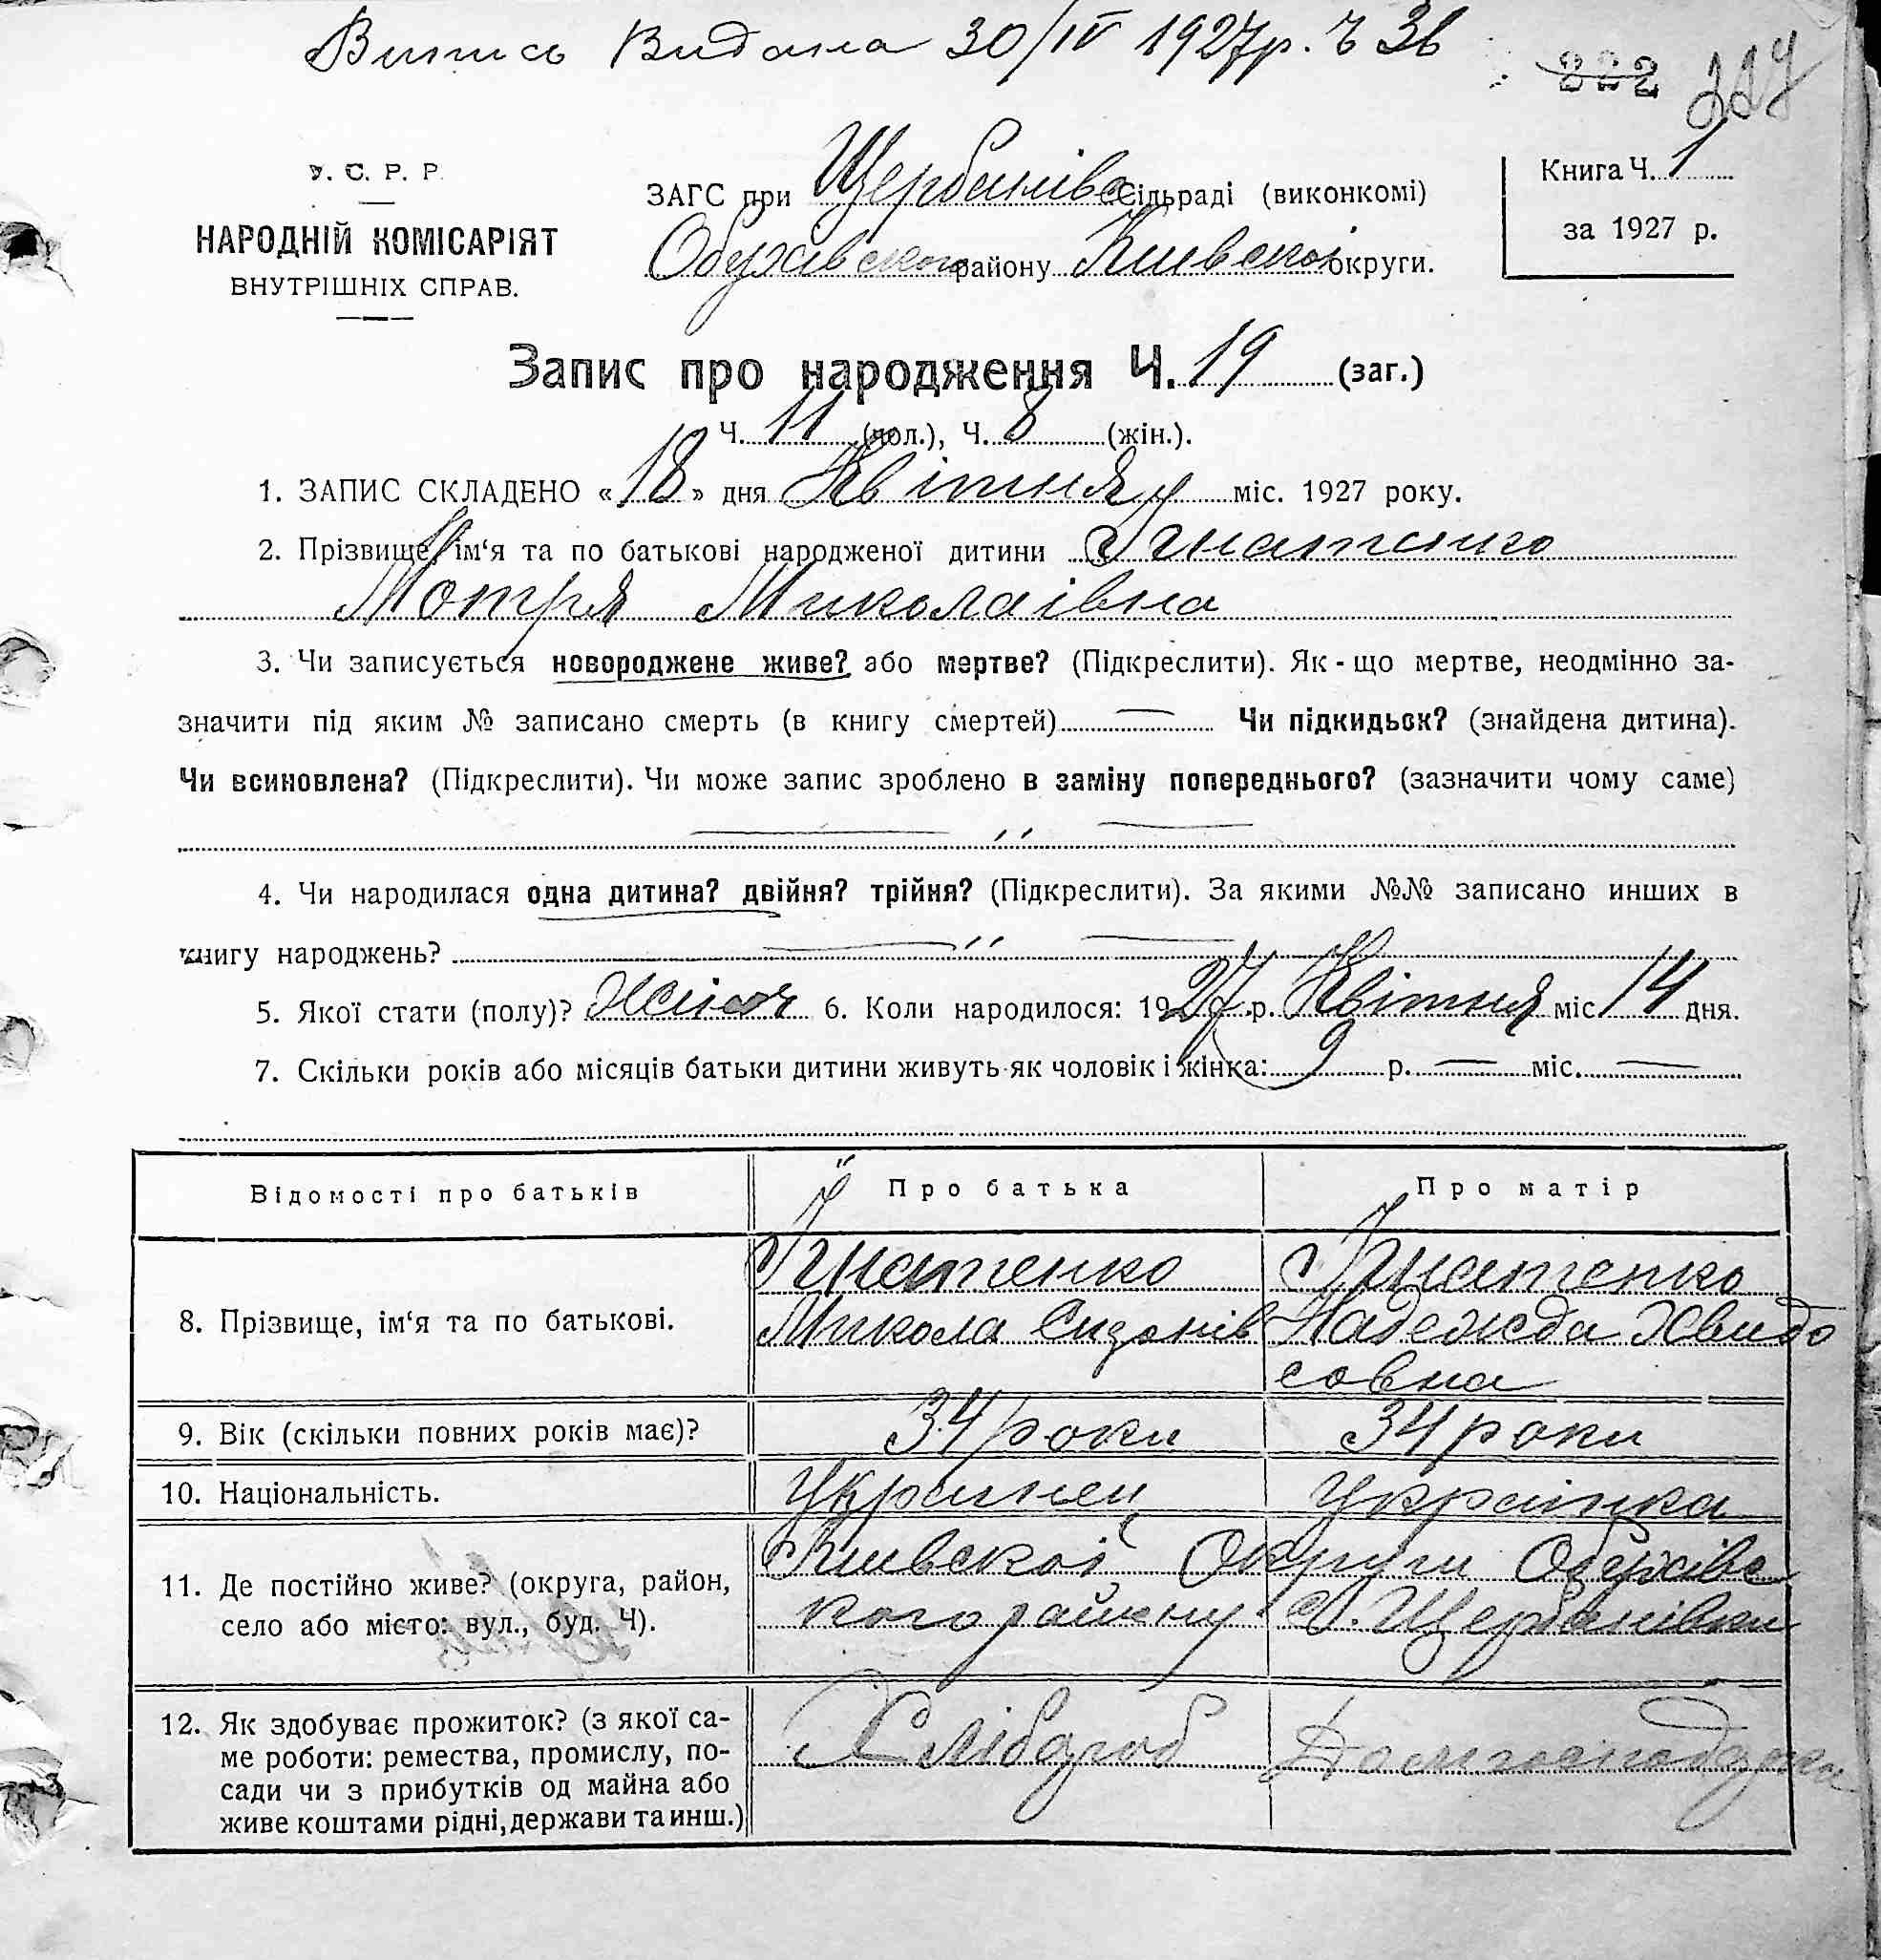 Випись Видана 30/IV 1927р. Ч 36
222 227
У. С. Р. Р.
НАРОДНІЙ КОМІСАРІЯТ
ВНУТРІШНІХ СПРАВ.
ЗАГС при Щербанівс Сільраді (виконкомі)
Обухівского району Киівскоі округи.
Книга Ч. 1
за 1927 р.
Запис про народження Ч. 19 (заг.)
Ч. 11 (чол.), Ч. 8 (жін.).
1. ЗАПИС СКЛАДЕНО «18» дня Квітня міс. 1927 року.
2. Прізвище, ім‘я та по батькові народженої дитини Ігнатенко
Мотря Миколаівна
3. Чи записується новороджене живе? або мертве? (Підкреслити). Як-що мертве, неодмінно за-
значити під яким № записано смерть (в книгу смертей) — Чи підкидьок? (знайдена дитина).
Чи всиновлена? (Підкреслити). Чи може запис зроблено в заміну попереднього? (зазначити чому саме)
— ,, —
4. Чи народилася одна дитина? двійня? трійня? (Підкреслити). За якими №№ записано инших в
книгу народжень? — ,, —
5. Якої стати (полу)? Жіноч 6. Коли народилося: 1927 р. Квітня міс 14 дня.
7. Скільки років або місяців батьки дитини живуть як чоловік і жінка: 9 р. — міс. —
Відомості про батьків Про батька Про матір
8. Прізвище, ім‘я та по батькові.
Ігнатенко
Микола Сидонів
Ігнатенко
Надежда Хвидо
совна
9. Вік (скільки повних років має)? 34 роки 34 роки
10. Національність. Украинец Украінка
11. Де постійно живе? (округа, район,
село або місто: вул., буд. Ч).
Киівскоі Округи Обухівс
кого району С. Щербанівки
12. Як здобуває прожиток? (з якої са-
ме роботи: ремества, промислу, по-
сади чи з прибутків од майна або
живе коштами рідні, держави та инш.)
Хлібороб Домгосподарка